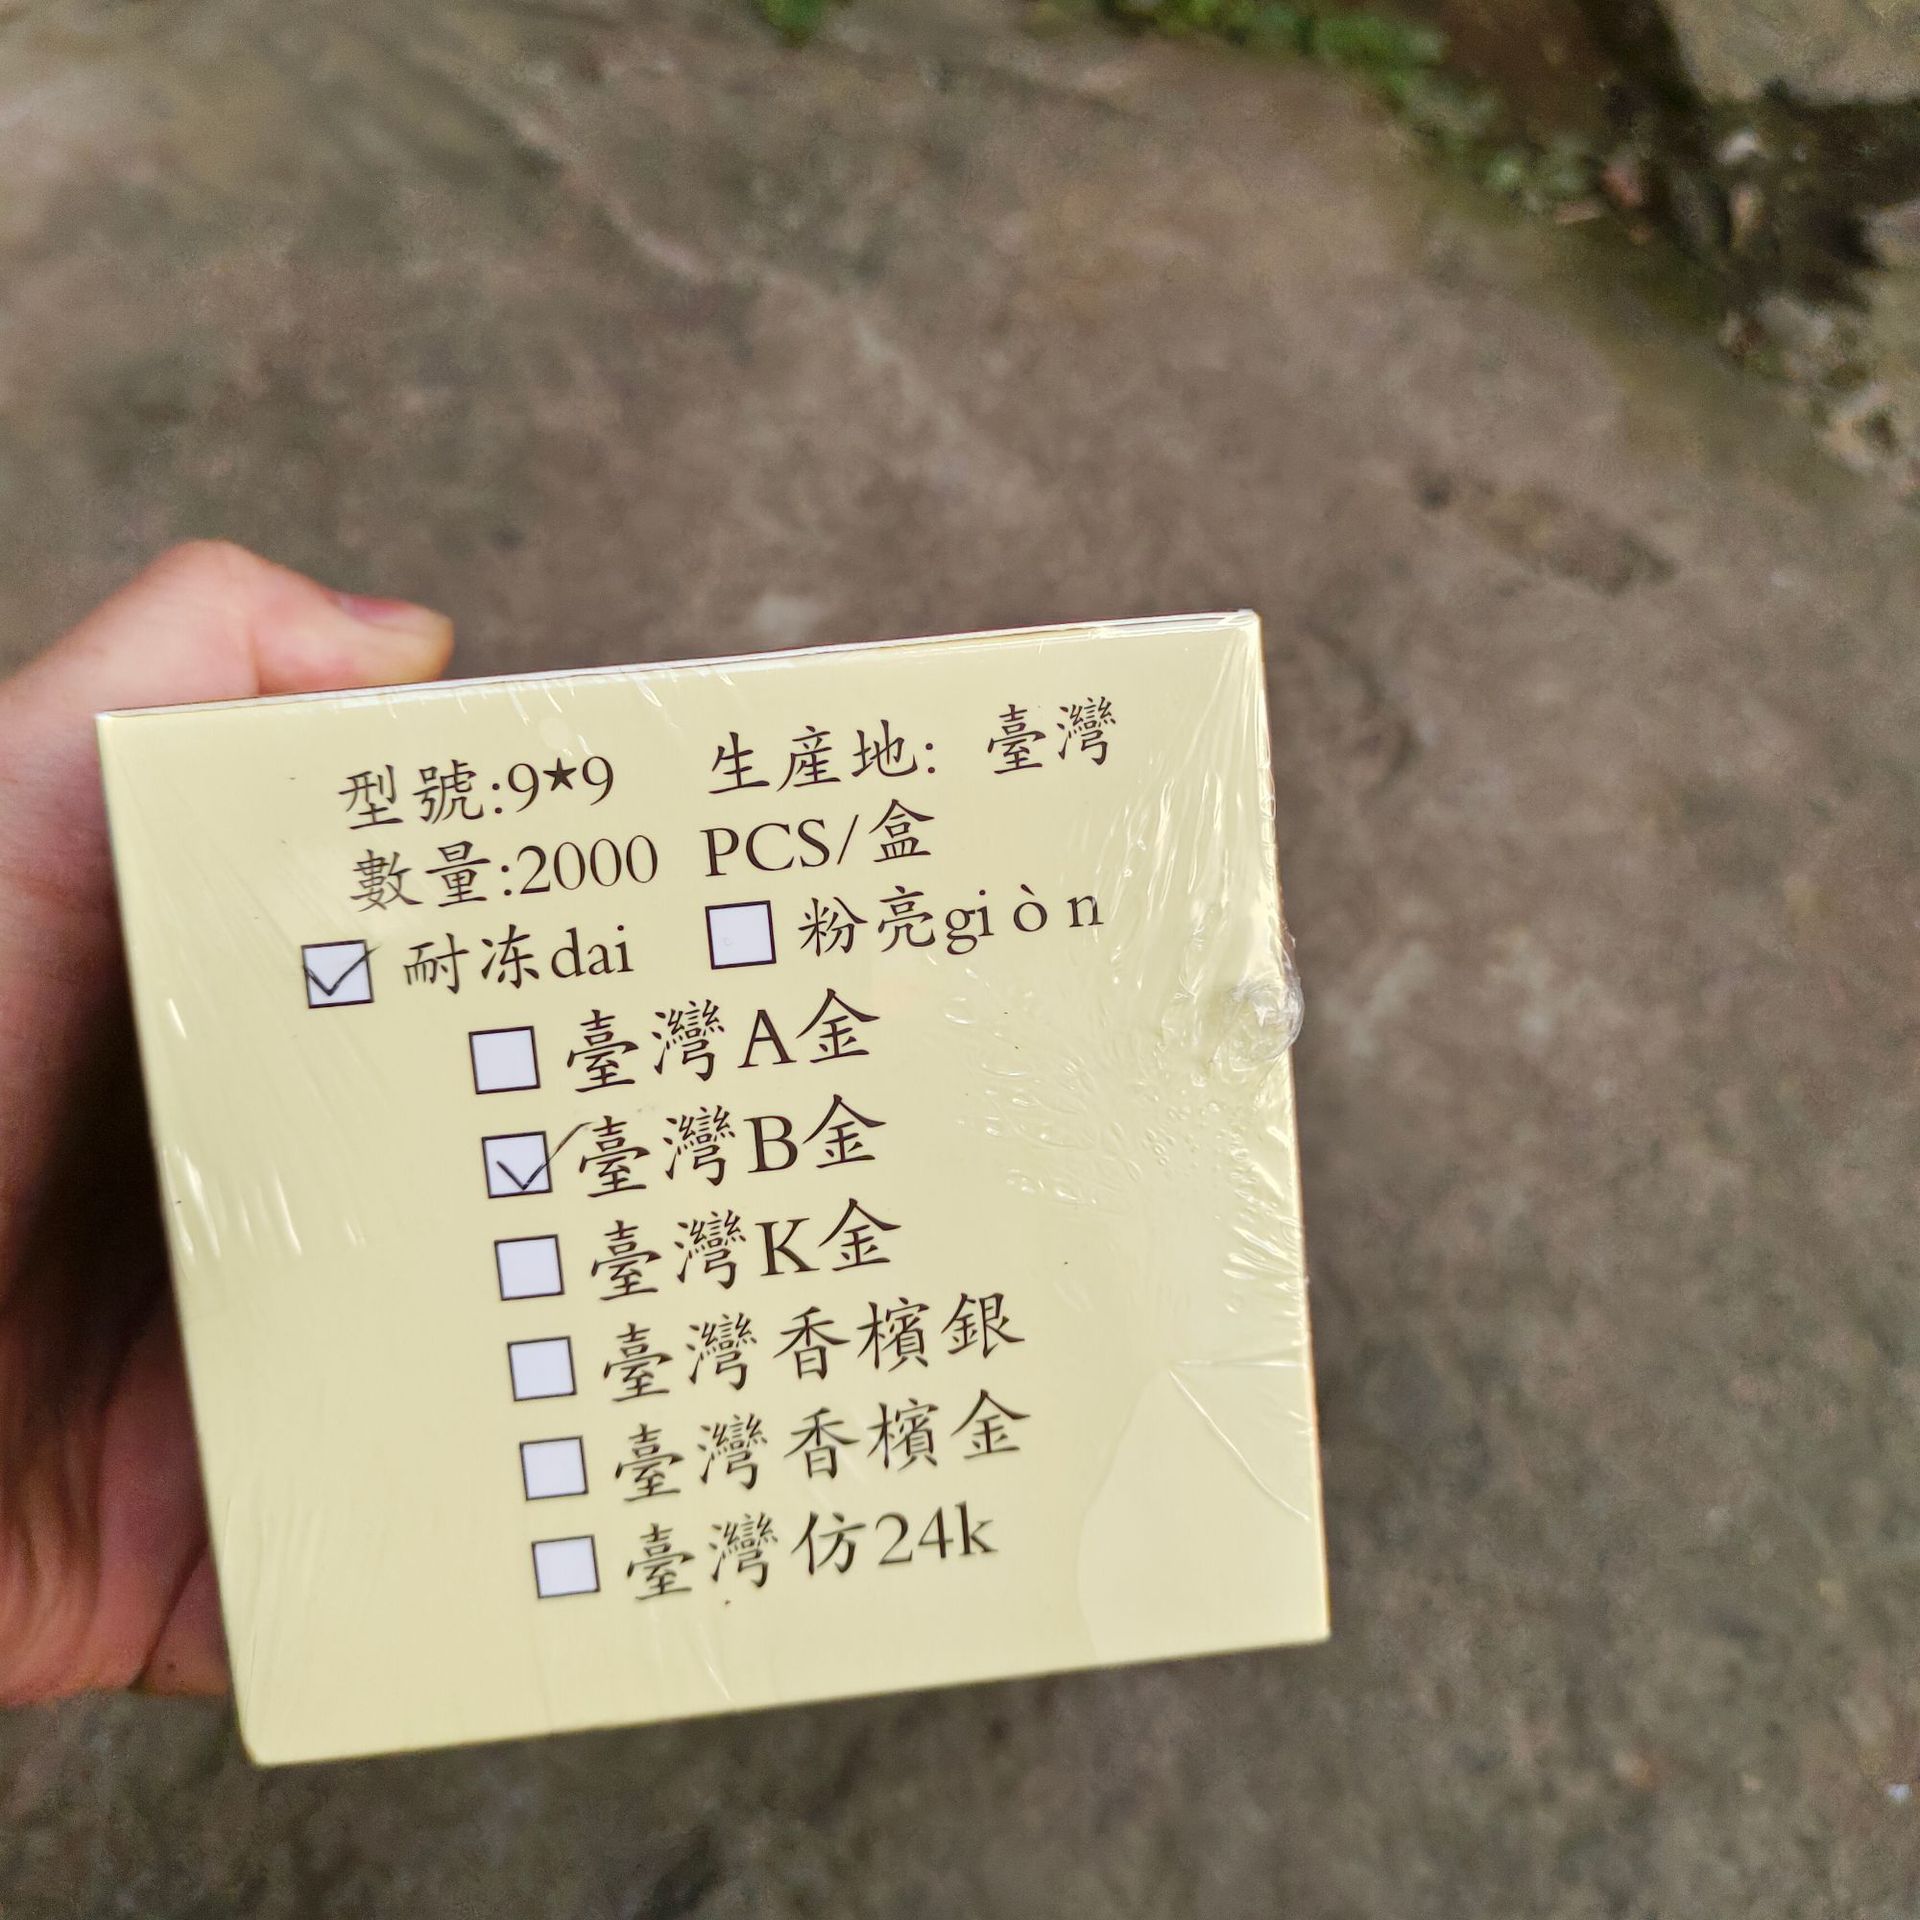 型號:9★9 生産地: 臺灣
數量:2000 PCS/盒
耐冻dai 粉亮giòn
臺灣A金
臺灣B金
臺灣K金
臺灣香檳銀
臺灣香檳金
臺灣仿24k